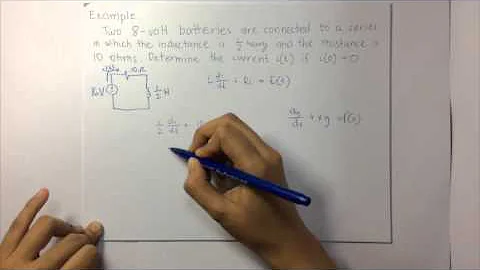 Example
Two 8-volt batteries are connected to a series
in which the inductance is 1/2 henry and the resistance is
10 ohms. Determine the current i(t) if i(0) = 0
10Ω
L di/dt + Ri = E(t)
1/2 H
1/2 di/dt +
dy/dx